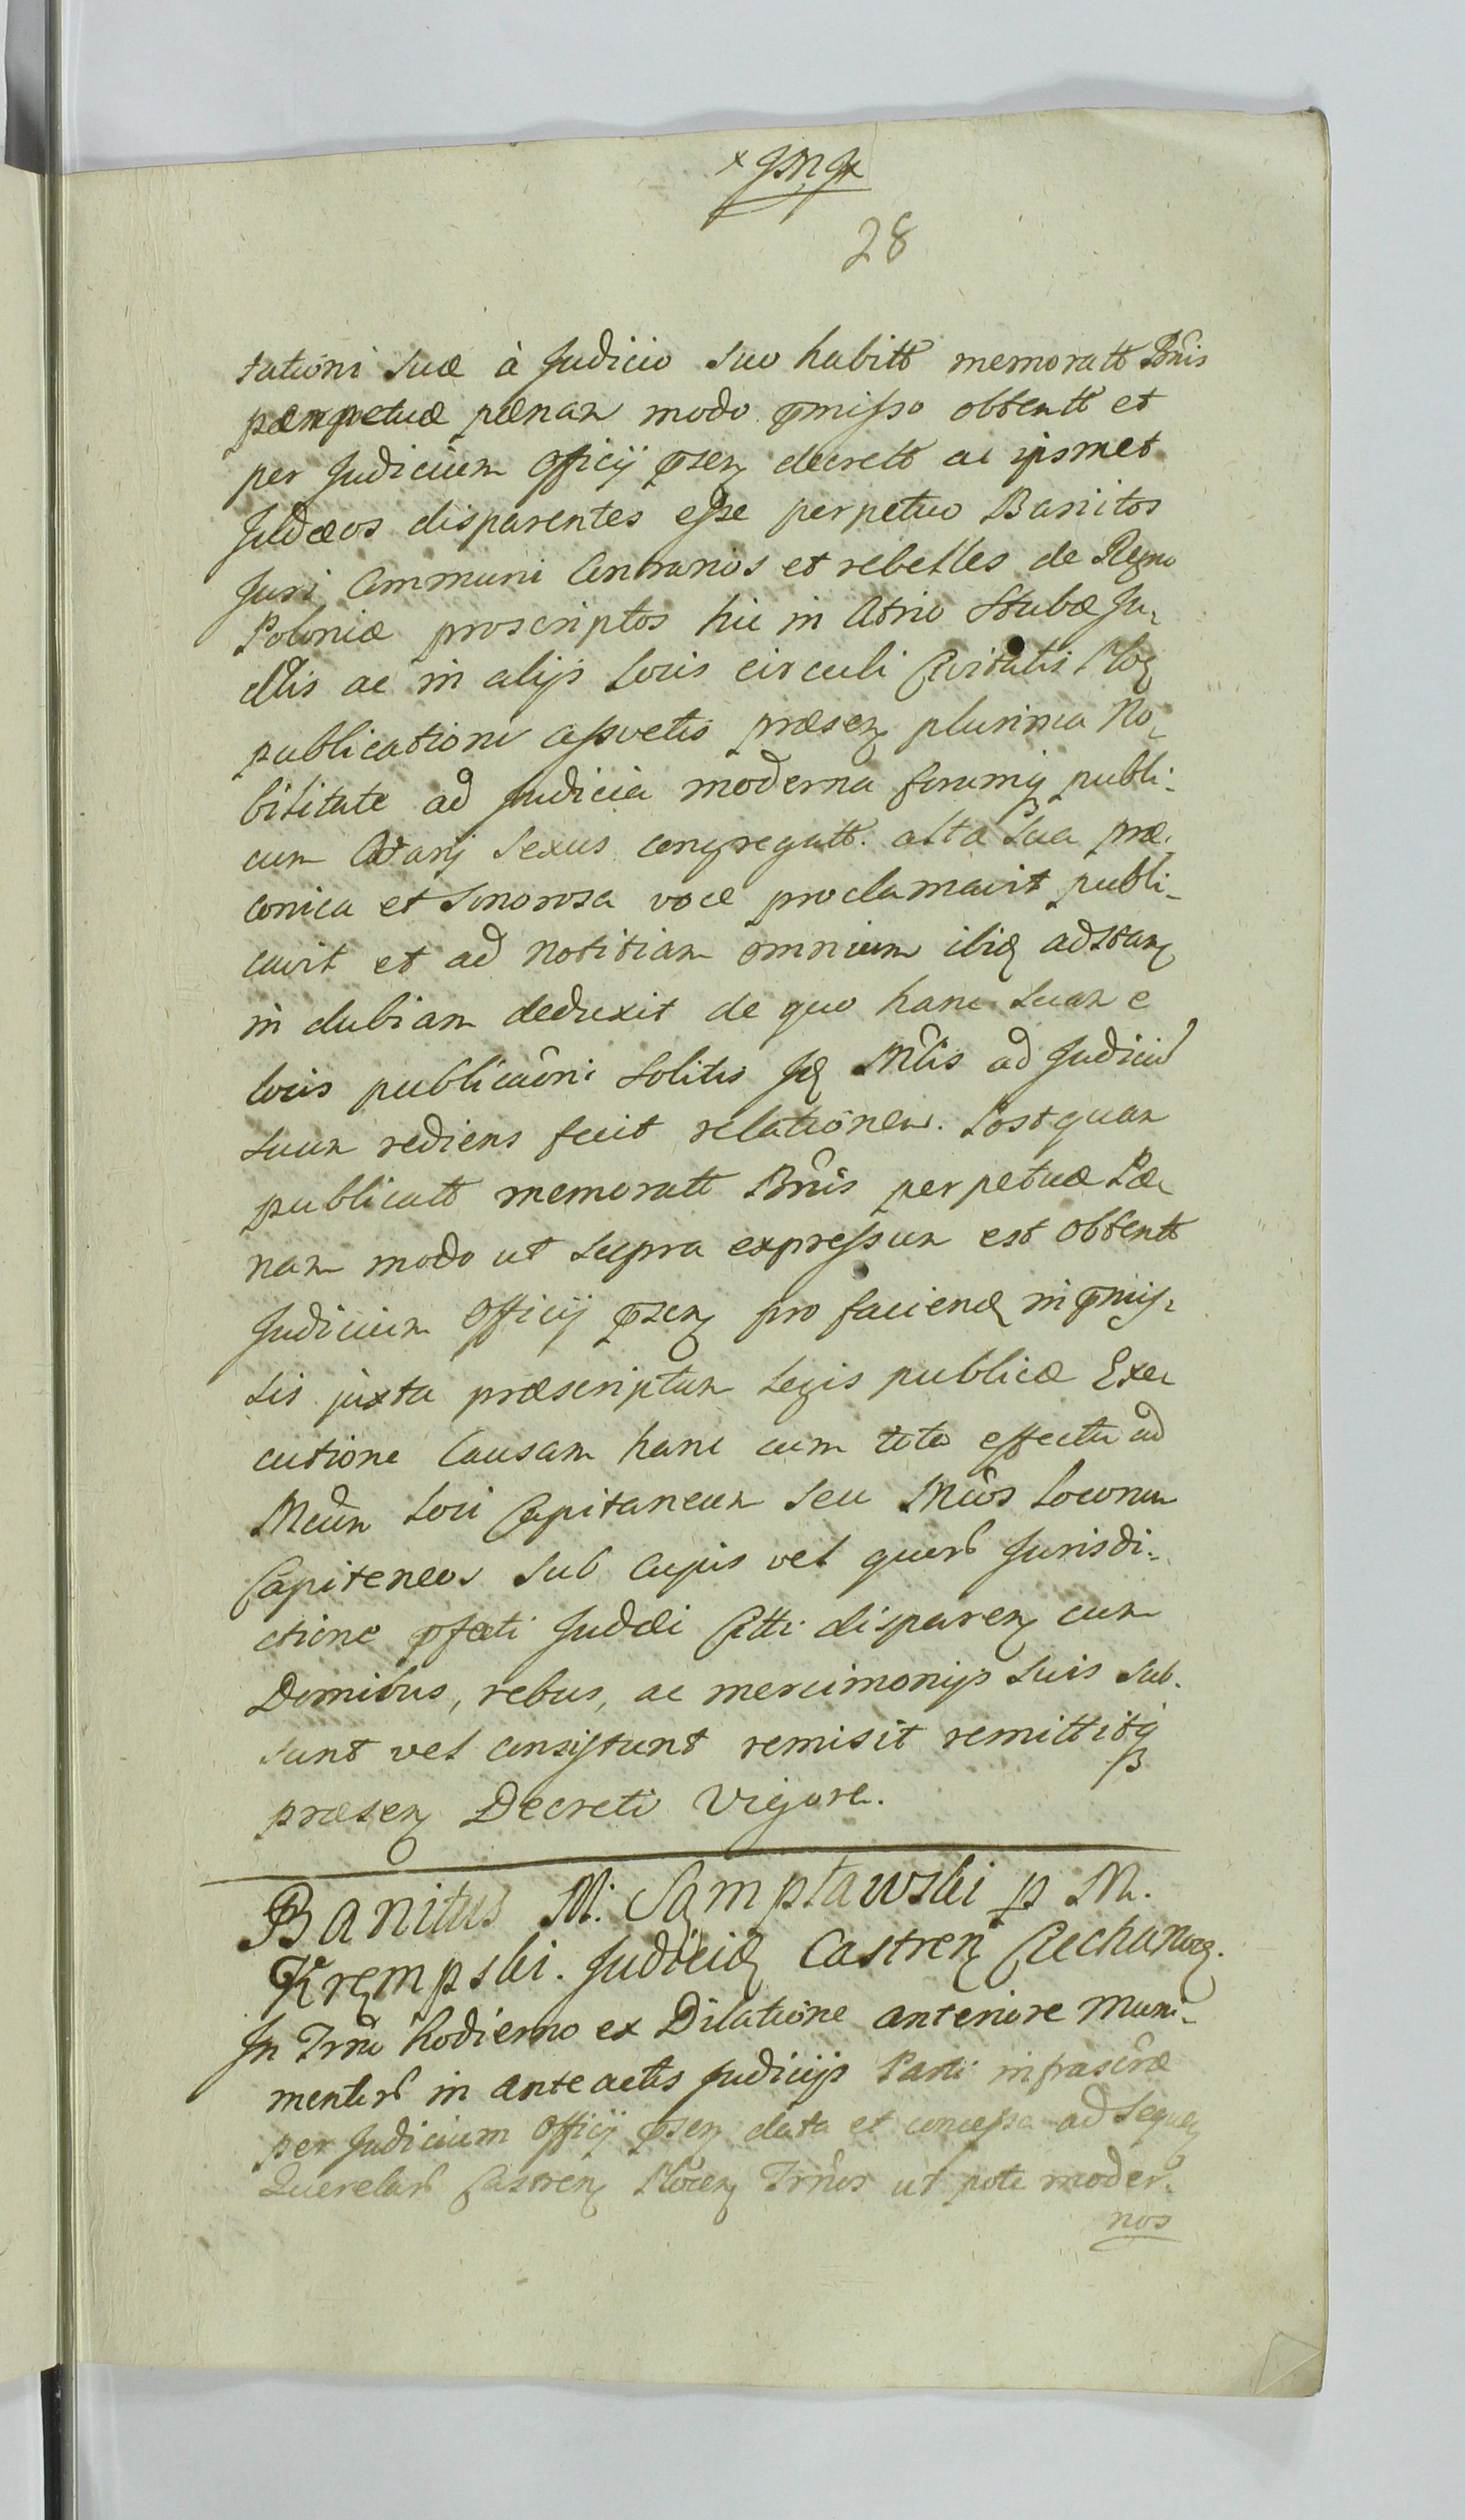 28
tationi suæ à Judicio suo habitt memoratt Bnis
pærpetuæ pænam modo pmisso obtentt et
per Judicium Officij psen decrett ac ipsmet
Judæos disparentes esse perpetuo Banitos
Juri Communi Contrarios et rebelles de Regno
Poloniæ proscriptos hic in Atrio Stubæ Ju-
dllis ac in alijs locis circuli Civitatis Plo
publicationi assvetis præsen plurima No-
bilitate ad Judicia moderna forumq publi-
cum utarq sexus congregatt. alta sua præ-
conica et sonorosa voce proclamavit publi-
cavit et ad notitiam omnium ibiq adstan
in dubiam deduxit de quo hanc suam e
locis publicaoni solitis Jd Mlis ad Judiciu
suum rediens fecit relationem. Postquam
publicatt memoratt Bnis perpetuæ Pæ-
nam modo ut supra expressum est obtentt
Judicium Officij psen pro faciend in pmis-
sis juxta præscriptum Legis publicæ Exe-
cutione Causam hanc cum toto effectu ad
Mcum Loci Capitaneum seu Mcos Locorum
Capiteneos sub cujus vel quorb Jurisdi-
ctione pfati Judæi Citti disparen cum
Domibus, rebus, ac mercimonijs suis sub-
sunt vel consistunt remisit remittitq
præsen Decreti Vigore.
Banitus M. Sąmpławski p M.
Krępski. Judiciq Castren Ciechanoq.
In Trno hodierno ex Dilatione anteriore Muni-
mentorb in ante actis Judicijs Parti infrascræ
per Judicium Officij psen data et concessa ad sequen
Querelarb Castren Plocen Trnos ut pote moder-
nos